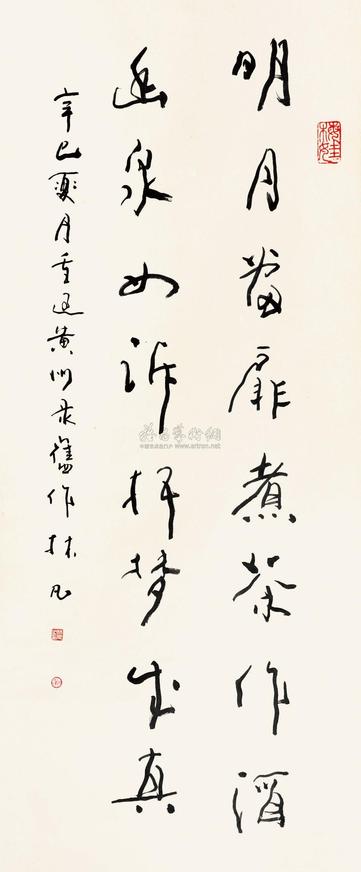 明月當扉煮茶作酒
幽泉如訴梦成真
辛巳夏月重过黄州录舊作林凡
雅昌藝術網
www.artron.net